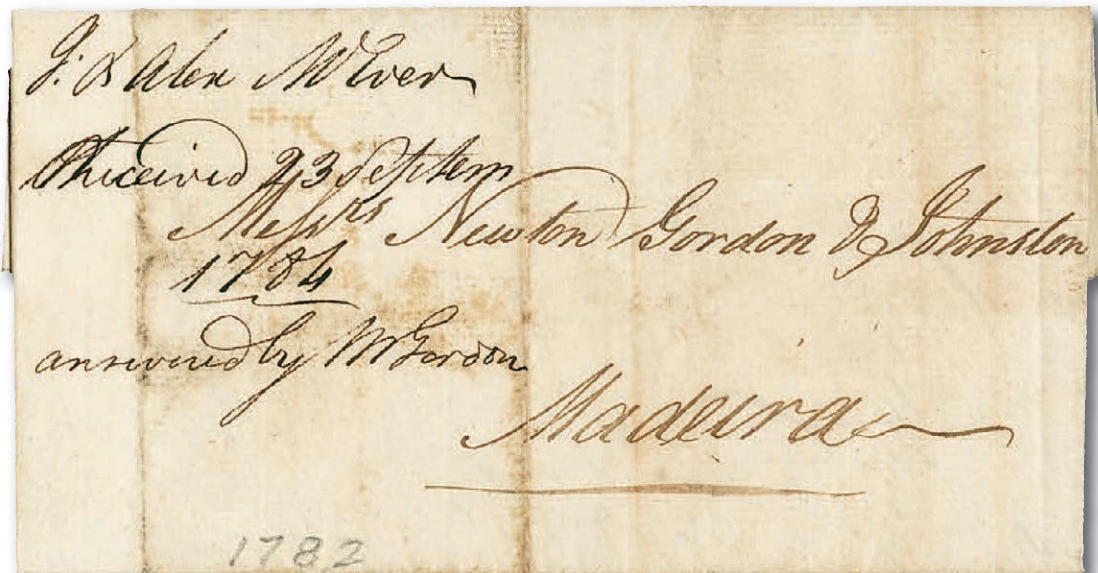 J: & Alex McEver
Received 23 Septem
Messrs Newton Gordon & Johnston
1784
answered by Mr Gordon
Madeira
1782